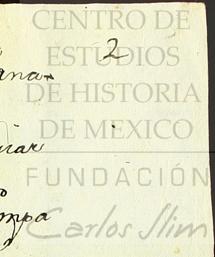 CENTRO DE
2
ESTUDIOS
ana
DE HISTORIA
DE MEXICO
uar
FUNDACIÓN
mpa
Carlos Slim